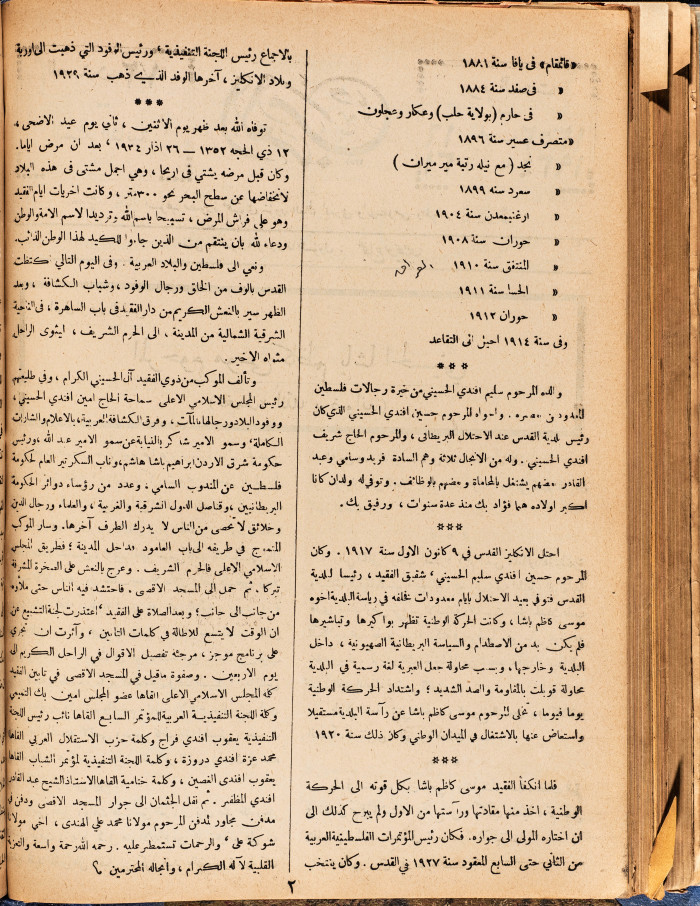 «قائمقام» في يافا سنة ١٨٨١
« في صفد سنة ١٨٨٤
« في حارم (بولاية حلب) وعكار وعجلون
«متصرف عسير سنة ١٨٩٦
« نجد (مع نيله رتبة مير ميران)
« سعرد سنه ١٨٩٩
« ارغني معدن سنة ١٩٠٤
« حوران سنة ١٩٠٨
« المنتفق سنة ١٩١٠ العراق
« الحسا سنة ١٩١١
« حوران ١٩١٢
وفي سنة ١٩١٤ احيل الى التقاعد
***
والده المرحوم سليم افندي الحسيني من خيرة رجالات فلسطين
المعدودين بعصره . واخواه المرحوم حسين افندي الحسيني الذي كان
رئيس بلدية القدس عند الاحتلال البريطاني ، والمرحوم الحاج شريف
افندي الحسيني . وله من الانجال ثلاثة وهم السادة فريد وسامي وعبد
القادر بعضهم يشتغل بالمحاماة وبعضهم بالوظائف . وتوفي له ولدان كانا
اكبر اولاده هما فؤاد بك منذ عدة سنوات ، ورفيق بك .
***
احتل الانكليز القدس في ٩ كانون الاول سنة ١٩١٧ . وكان
المرحوم حسين افندي سليم الحسيني ، شقيق الفقيد ، رئيسا لبلدية
القدس فتوفي بعيد الاحتلال بايام معدودات فخلفه في رياسة البلدية اخوه
موسى كاظم باشا ، وكانت الحركة الوطنية تظهر بواكيرها وتباشيرها
فلم يكن بد من الاصطدام والسياسة البريطانية الصهيونية ، داخل
البلدية وخارجها ، وبسبب محاولة جعل العبرية لغة رسمية في البلدية
محاولة قوبلت بالمقاومة والصد الشديد ؛ واشتداد الحركة الوطنية
يوما فيوما ، تخلى المرحوم موسى كاظم باشا عن رآسة البلدية مستقيلا
واستعاض عنها بالاشتغال في الميدان الوطني وكان ذلك سنة ١٩٢٠
***
فلما انكفأ الفقيد موسى كاظم باشا بكل قوته الى الحركة
الوطنية ، اخذ منها مقادتها ورآستها من الاول ولم يبرح كذلك الى
ان اختاره المولى الى جواره . فكان رئيس المؤتمرات الفلسطينية العربية
من الثاني حتى السابع المعقود سنة ١٩٢٧ في القدس . وكان ينتخب
بالاجماع رئيس اللجنة التنفيذية ، ورئيس الوفود التي ذهبت الى اوربة
وبلاد الانكليز ، آخرها الوفد الذي ذهب سنة ١٩٢٩
***
توفاه الله بعد ظهر يوم الاثنين ، ثاني يوم عيد الاضحى ،
١٢ ذي الحجه ١٣٥٢ — ٢٦ اذار ١٩٣٤ ، بعد ان مرض اياما.
وكان قبل مرضه يشتي في اريحا ، وهي اجمل مشتى في هذه البلاد
لانخفاضها عن سطح البحر نحو ٣٠٠ متر ، وكانت اخريات ايام الفقيد
وهو على فراش المرض ، تسبيحا باسم الله وترديدا لاسم الامة والوطن
ودعاء لله بان ينتقم من الذين جاءوا للكيد لهذا الوطن الذائب.
ونعي الى فلسطين والبلاد العربية . وفي اليوم التالي كتظت
القدس بالوف من الخلق ورجال الوفود ، وشباب الكشافة ، وبعد
الظهر سير بالنعش الكريم من دار الفقيد في باب الساهرة ، في الناحية
الشرقية الشمالية من المدينة ، الى الحرم الشريف ، ليثوى الراحل
مثواه الاخير .
وتألف الموكب من ذوي الفقيد آل الحسيني الكرام ، وفي طليعتهم
رئيس المجلس الاسلامي الاعلى سماحة الحاج امين افندي الحسيني ،
ووفود البلاد ورجالها بالمآت ، وفرق الكشافة العربية ، بالاعلام والشارات
الكاملة ، وسمو الامير شاكر بالنيابة عن سمو الامير عبد الله ، ورئيس
حكومة شرق الاردن ابراهيم باشا هاشم ، وناب السكرتير العام لحكومة
فلسطين عن المندوب السامي ، وعدد من رؤساء دوائر الحكومة
البريطانيين ، وقناصل الدول الشرقية والغربية ، والعلماء ورجال الدين
وخلائق لا تحصى من الناس لا يدرك الطرف آخرها. وسار الموكب
في طريقه الى باب العامود فداخل المدينة ؛ فطريق المجلس
الاسلامي الاعلى فالحرم الشريف . وعرج بالنعش على الصخرة المشرفة
تبركا . ثم حمل الى المسجد الاقصى . فاحتشد فيه الناس حتى ملأوه
من جانب الى جانب ؛ وبعد الصلاة على الفقيد ، اعتذرت لجنة التشييع عن
ان الوقت لا يتسع للاطالة في كلمات التابين ، وآثرت ان تجري
على برنامج موجز ، مرجئة تفصيل الاقوال في الراحل الكريم الى
يوم الاربعين . وصفوة ما قيل في المسجد الاقصى في تابين الفقيد
كلمه المجلس الاسلامي الاعلى القاها عضو المجلس امين بك التميمي
وكلمة اللجنة التنفيذية العربية للمؤتمر السابع القاها نائب رئيس اللجنة
التنفيذية يعقوب افندي فراج وكلمة حزب الاستقلال العربي القاها
محمد عزة افندي دروزة ، وكلمة اللجنة التنفيذية لمؤتمر الشباب القاها
يعقوب افندي الغصين ، وكلمة ختامية القاها الاستاذ الشيخ عبد القادر
افندي المظفر . ثم نقل الجثمان الى جوار المسجد الاقصى ودفن في
مدفن مجاور لمدفن المرحوم مولانا محمد علي الهندي ، اخي مولانا
شوكة علي ، والرحمات تستمطر عليه . رحمه الله رحمة واسعة والتعزية
القلبية لآله الكرام ، وانجاله المحترمين ؟
٢